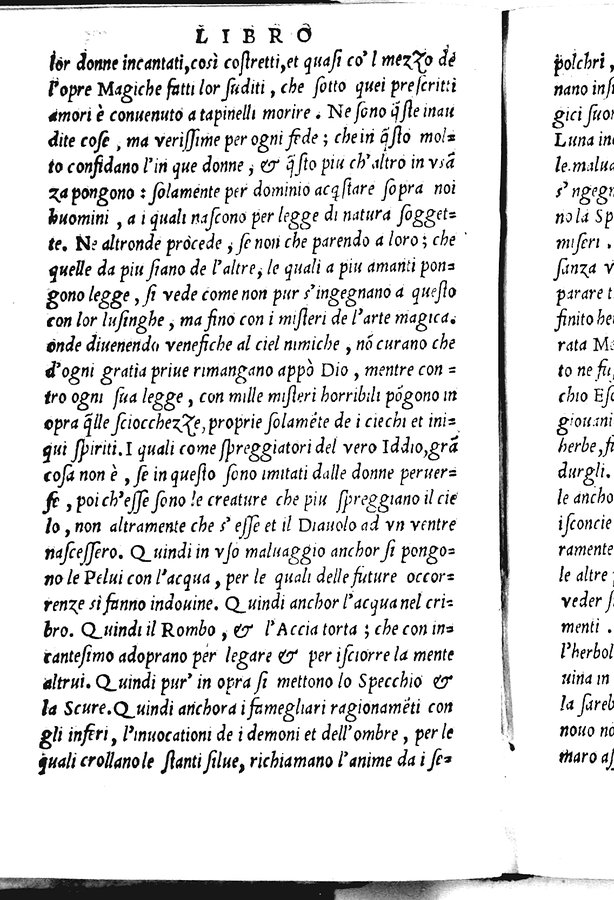 LIBRO
lor donne incantati, così coſtretti, et quaſi co'l mezzo de
l'opre Magiche fatti lor ſuditi, che ſotto quei preſcritti
amori è conuenuto a tapinelli morire. Ne ſono q̃ſte inau
dite coſe, ma veriſſime per ogni fede; che in q̃ſto mol=
to confidano l'in que donne, & q̃ſto piu ch'altro in vsã
za pongono: ſolamente per dominio acqſtare ſopra noi
huomini, a i quali naſcono per legge di natura ſogget=
te. Ne altronde procede, ſe non che parendo a loro; che
quelle da piu ſiano de l'altre, le quali a piu amanti pon=
gono legge, ſi vede come non pur s'ingegnano a queſto
con lor luſinghe, ma fino con i miſteri de l'arte magica.
onde diuenendo venefiche al ciel nimiche, nõ curano che
d'ogni gratia priue rimangano appò Dio, mentre con=
tro ogni ſua legge, con mille miſteri horribili põgono in
opra q̃lle ſciocchezze, proprie ſolamẽte de i ciechi et ini=
qui ſpiriti. I quali come ſpreggiatori del vero Iddio, grã
coſa non è, ſe in queſto ſono imitati dalle donne peruer=
ſe, poi ch'eſſe ſono le creature che piu ſpreggiano il cie
lo, non altramente che s'eſſe et il Diauolo ad vn ventre
naſceſſero. Quindi in vſo maluaggio anchor ſi pongo=
no le Pelui con l'acqua, per le quali delle future occor=
renze si fanno indouine. Quindi anchor l'acqua nel cri=
bro. Quindi il Rombo, & l'Accia torta; che con in=
canteſimo adoprano per legare & per iſciorre la mente
altrui. Quindi pur' in opra ſi mettono lo Specchio &
la Scure. Quindi anchora i famegliari ragionamẽti con
gli inferi, l'inuocationi de i demoni et dell'ombre, per le
quali crollano le ſtanti ſilue, richiamano l'anime da i ſe=
polchri,
nano inſ
gici ſuor
Luna in
le. malua
s'ngegn
no la Sp
miſeri.
ſanza v
parare t
finito he
rata M
to ne fu
chio Eſ
giouani
herbe, ſi
durgli.
le ancho
iſconcie
ramente
le altre
veder ſ
menti.
l'herbol
uina in
la ſareb
nouo no
maro aſ